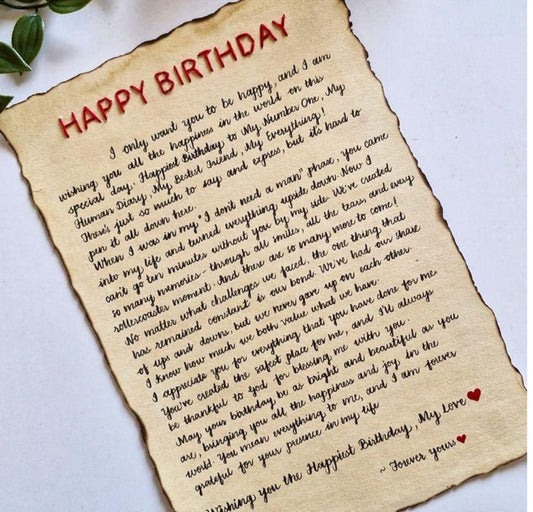 HAPPY BIRTHDAY
I only want you to be happy, and I am
wishing you all the happiness in the world on this
special day. Happiest Birthday to My Number One, My
Human Diary, My Bestest Friend, My Everything!
There's just so much to say and express, but it's hard to
pen it all down here.
When I was in my "I don't need a man" phase, you came
into my life and turned everything upside down. Now I
can't go ten minutes without you by my side. We've created
so many memories - through all smiles, all the tears, and every
rollercoaster moment. And there are so many more to come!
No matter what challenges we faced, the one thing that
has remained constant is our bond. We've had our share
of ups and downs, but we never gave up on each other.
I know how much we both value what we have.
I appreciate you for everything that you have done for me
You've created the safest place for me, and I'll always
be thankful to God for blessing me with you.
May your birthday be as bright and beautiful as you
are, bringing you all the happiness and joy in the
world. You mean everything to me, and I am forever
grateful for your presence in my life
Wishing you the Happiest Birthday, My Love
~ Forever yours